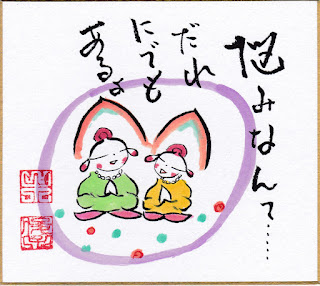 悩みなんて……
だれ
にでも
あるよ